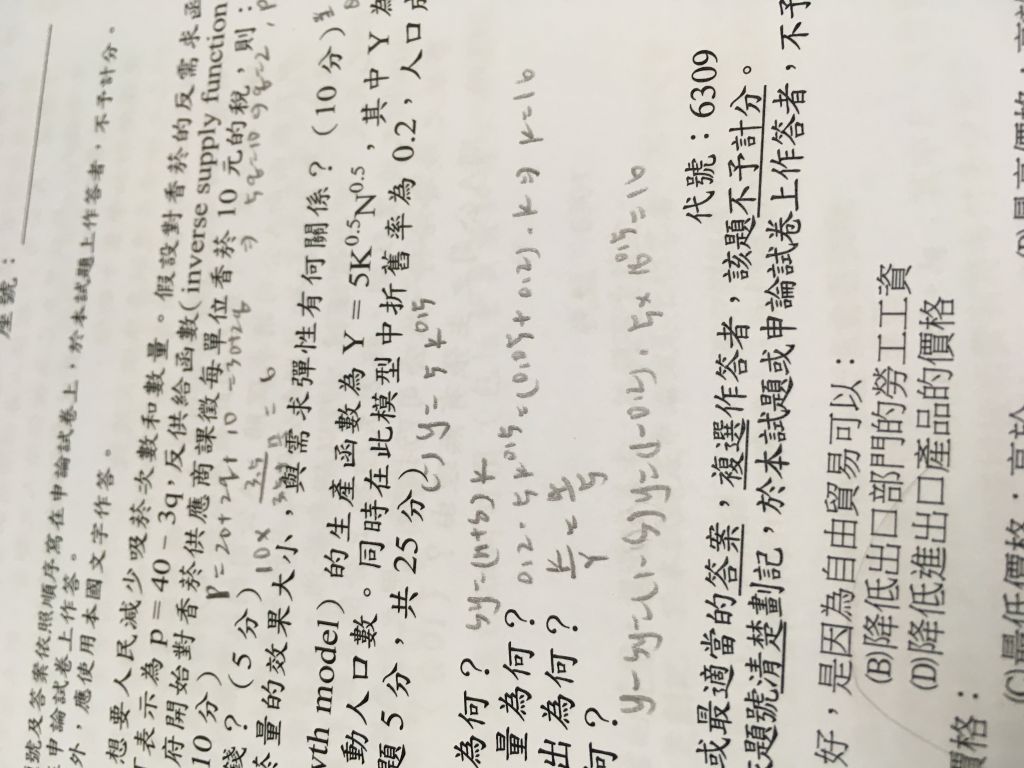 座號：
號及答案依照順序寫在申論試卷上，於本試題上作答者，不予計分。
申論試卷上作答。
外，應使用本國文字作答。
想要人民減少吸菸次數和數量。假設對香菸的反需求函
表示為 p = 40 − 3q，反供給函數(inverse supply function
府開始對香菸供應商課徵每單位香菸 10 元的稅，則：
10 分）
錢？（5 分）
菸量的效果大小，與需求彈性有何關係？（10 分）
wth model）的生產函數為 Y = 5K^0.5N^0.5，其中 Y 為
動人口數。同時在此模型中折舊率為 0.2，人口成
題 5 分，共 25 分）
y = 5 k^0.5
為何？
sy = (n+δ) k
量為何？
0.2 · 5 k^0.5 = (0.05 + 0.2) · k ⇒ k = 16
出為何？
何？
y − sy = (1 − s) y = (1 − 0.2) · 5 × 16^0.5 = 16
代號：6309
或最適當的答案，複選作答者，該題不予計分。
題號清楚劃記，於本試題或申論試卷上作答者，不予
好，是因為自由貿易可以：
(B)降低出口部門的勞工工資
(D)降低進出口產品的價格
價格：
(C)最低價格：高於